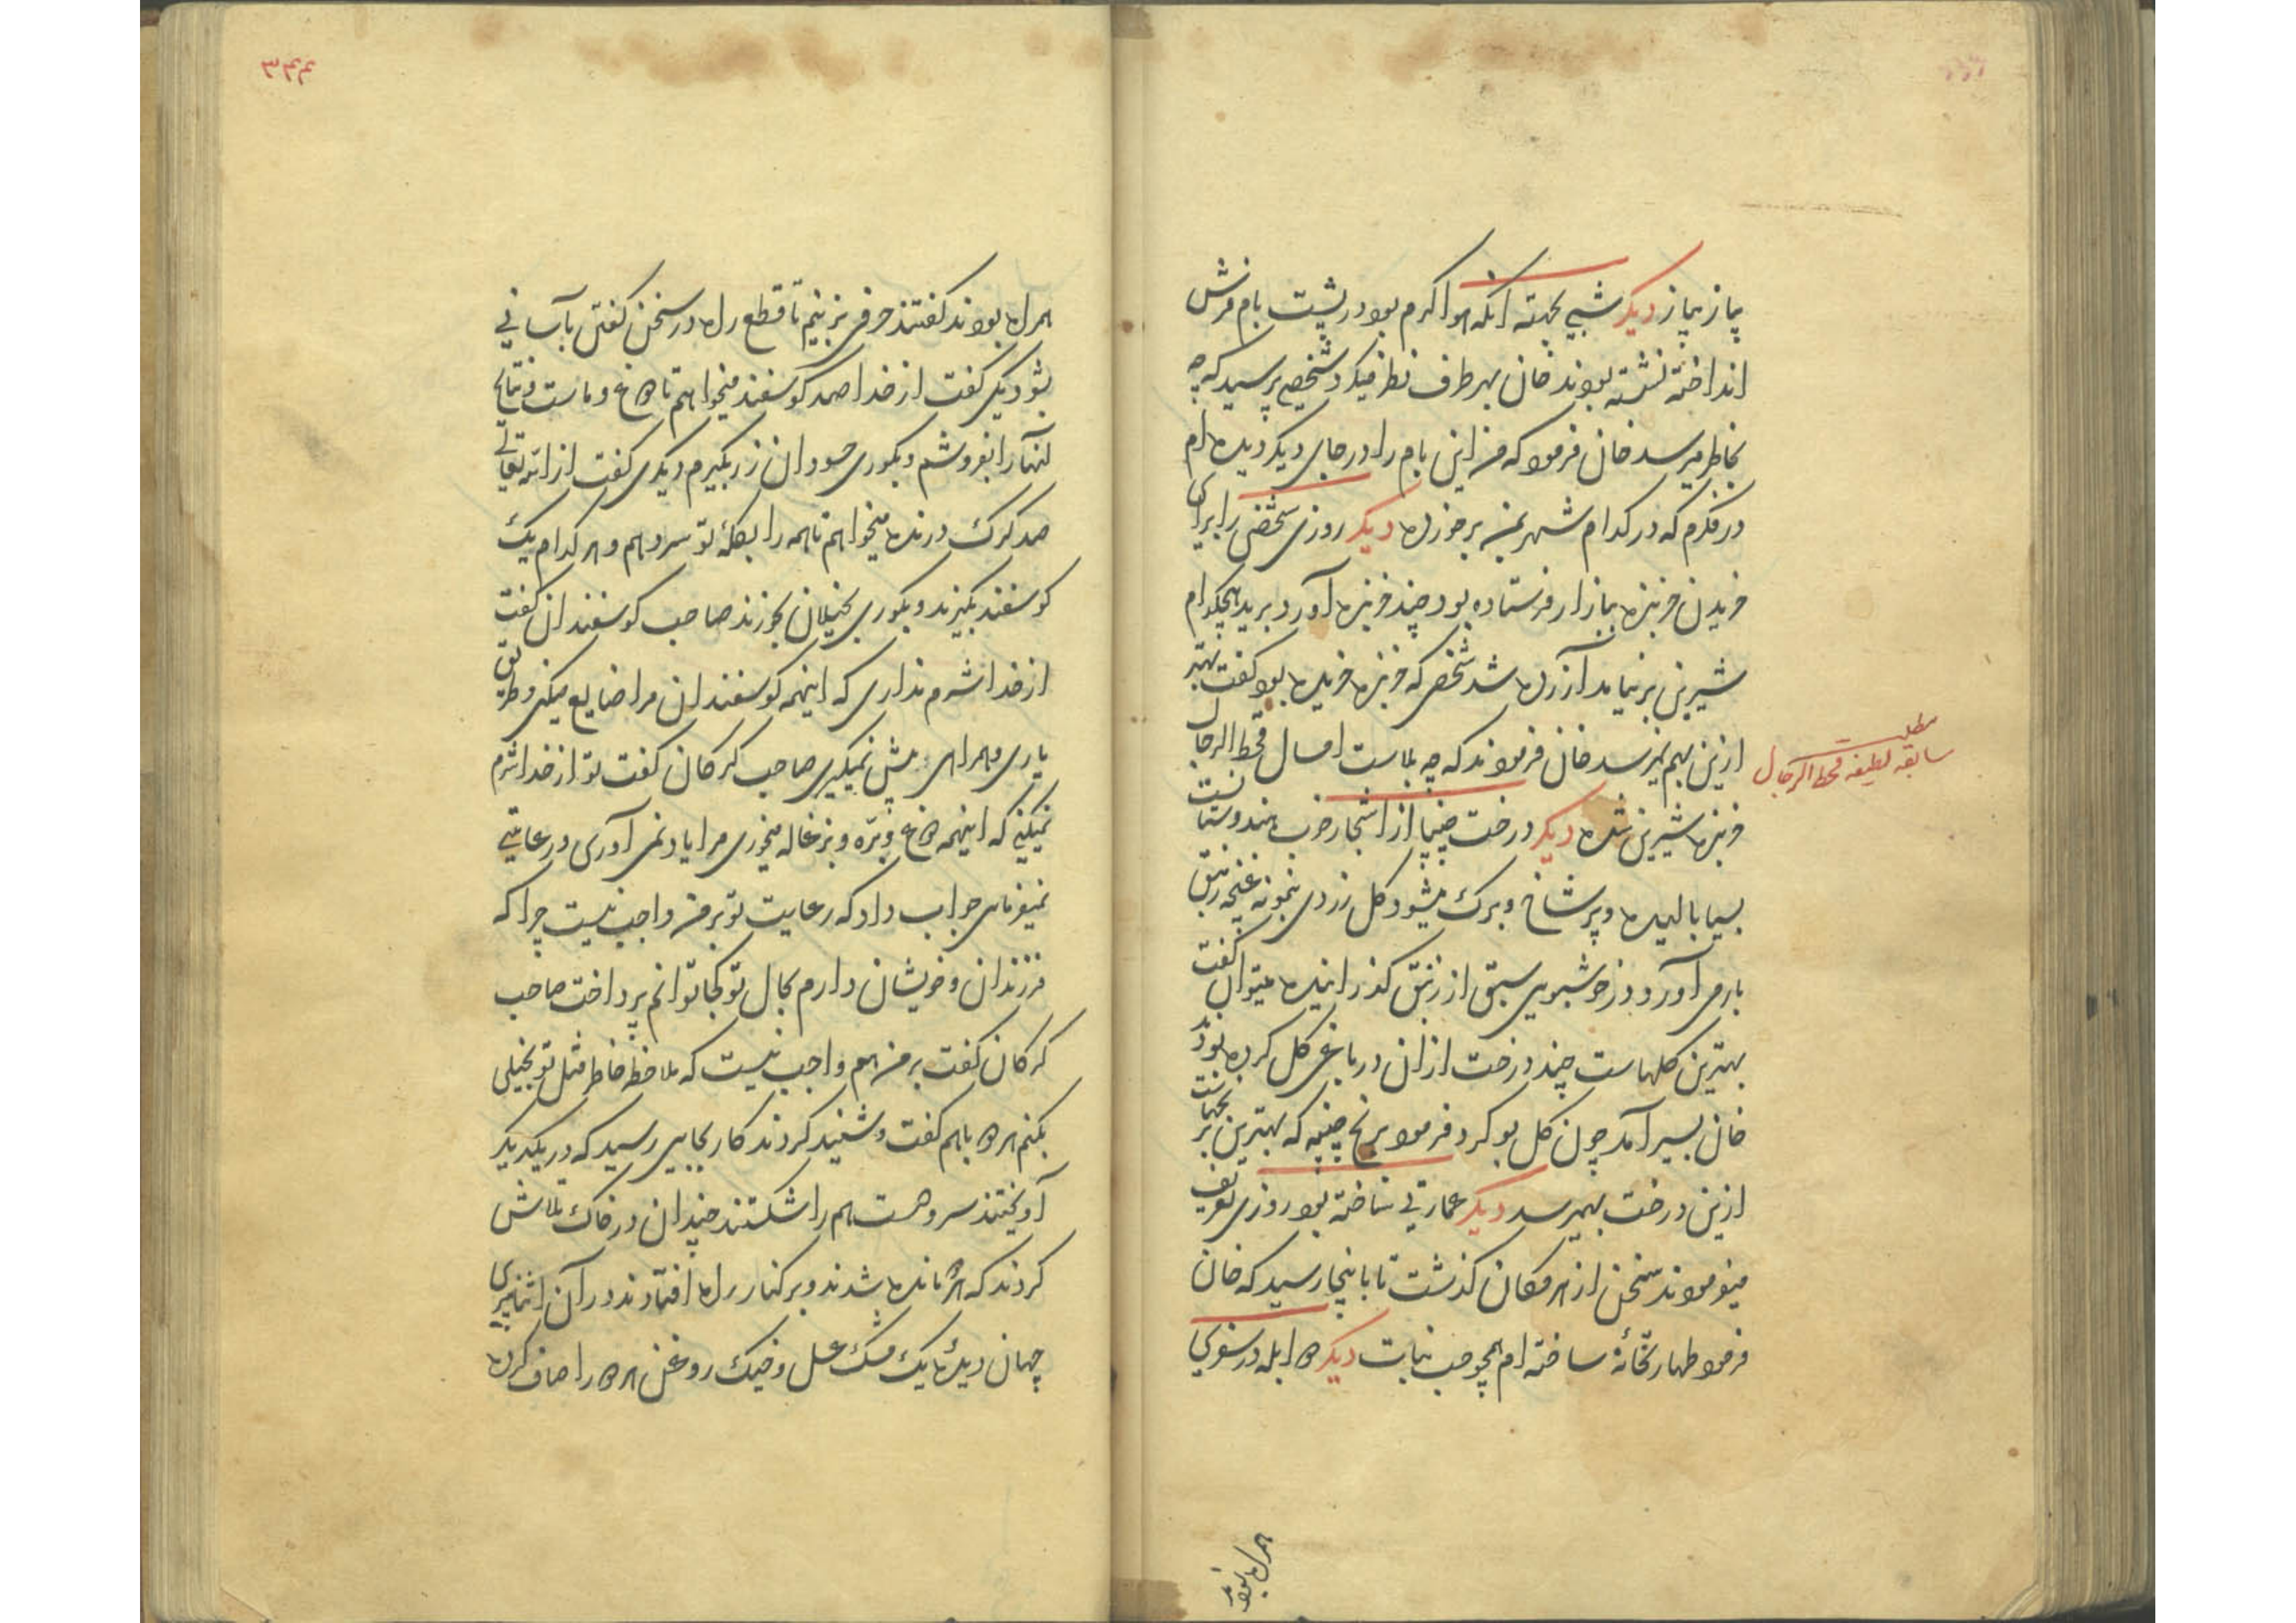 پیاز پیاز دیگر شبی بجهته آنکه هوا گرم بود در پشت بام فرش
انداخته نشسته بودند خان بهر طرف نظر میکرد شخصی پرسید که چه
بخاطر میرسد خان فرمود که من این بام را در جای دیگر دیده ام
در فکرم که در کدام شهر بمن برخورده دیگر روزی شخصی را برای
خریدن خربزه ببازار فرستاده بود چند خربزه آورد برید هیچکدام
شیرین بر نیامد آزرده شد شخصی که خربزه خریده بود گفت بهتر
ازین بهم نمیرسد خان فرمودند که چه بلاست امسال قحط الرجال
خربزه شیرین شده دیگر درخت چنپا از اشجار خوب هندوستانست
مطلب
سابقه لطیفه قحط الرجال
بسیا بالیده و پر شاخ و برک میشود کل زردی بنمونه غنچه زنبق
بار می آورد و در خوشبویی سبق از زنبق گذرانیده میتوان گفت
بهترین کلهاست چند درخت ازان در باغی کل کرده بود
خان بسیر آمد چون کل بو کرد فرمود برنج چنپه که بهترین برنجهاست
ازین درخت بهمیرسد دیگر عمارتی ساخته بود روزی تعریف
میفرمودند سخن از هر مکان گذشت تا باینجا رسید که خان
فرمود طهارتخانهٔ ساخته ام همچو حب نبات دیگر دو ابله در سفری
همراه بودند
۳۳۳
همراه بودند گفتند حرفی بزنیم تا قطع راه در سخن گفتن بآسانی
شود یکی گفت از خدا صد گوسفند میخواهم تا دوغ و ماست و نتایج
آنها را بفروشم و بکوری حسودان زر بگیرم دیگری گفت از الله تعالی
صد گرگ درنده میخواهم تا همه را بگلهٔ تو سر دهم و هر کدام یک
گوسفند بگیرند و بکوری بخیلان بخورند صاحب گوسفندان گفت
از خدا شرم نداری که اینهمه گوسفندان مرا ضایع میکنی و طریق
یاری و همراهی پیش نمیگیری صاحب گرگان گفت تو از خدا شرم
نمیکنی که اینهمه دوغ و بره و بزغاله میخوری مرا یاد نمی آوری و رعایتی
نمیفرمای جواب داد که رعایت تو بر من واجب نیست چرا که
فرزندان و خویشان دارم بحال تو کجا توانم پرداخت صاحب
گرگان گفت بر من هم واجب نیست که ملاحظه خاطر مثل تو بخیلی
بکنم هر دو باهم گفت و شنید کردند کار بجایی رسید که در یکدیگر
آویختند سر و دست هم را شکستند چندان در خاک تلاش
کردند که هر دو مانده شدند و بر کنار راه افتادند در آن اثنا پیری
جهان دیدهٔ یک مشک عسل و خیک روغن هر دو را صاف کرده